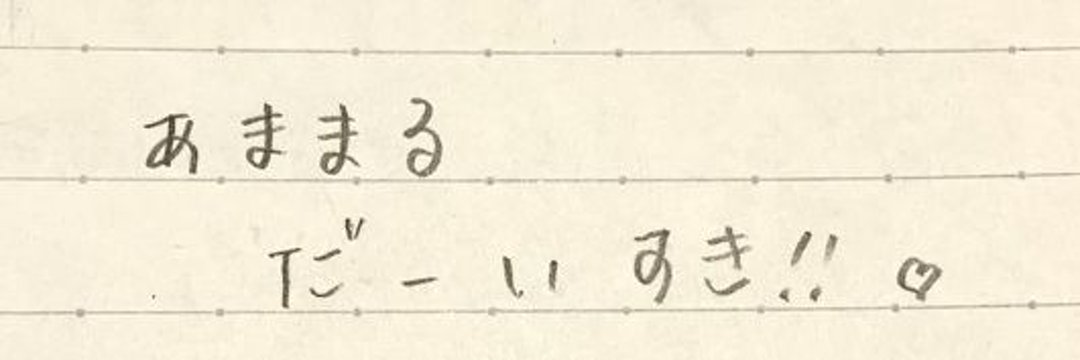 あままる
だーいすき!!♡